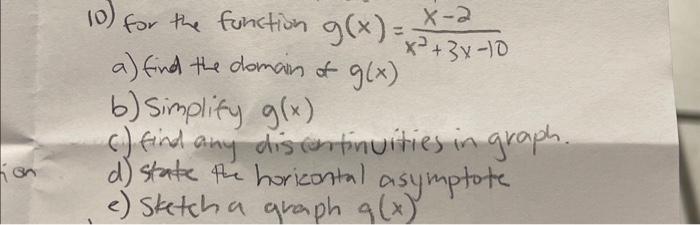 10) for the function g(x) = x-2 / x²+3x-10
a) find the domain of g(x)
b) Simplify g(x)
c) find any discontinuities in graph.
ion d) state the horizontal asymptote
e) Sketch a graph g(x)